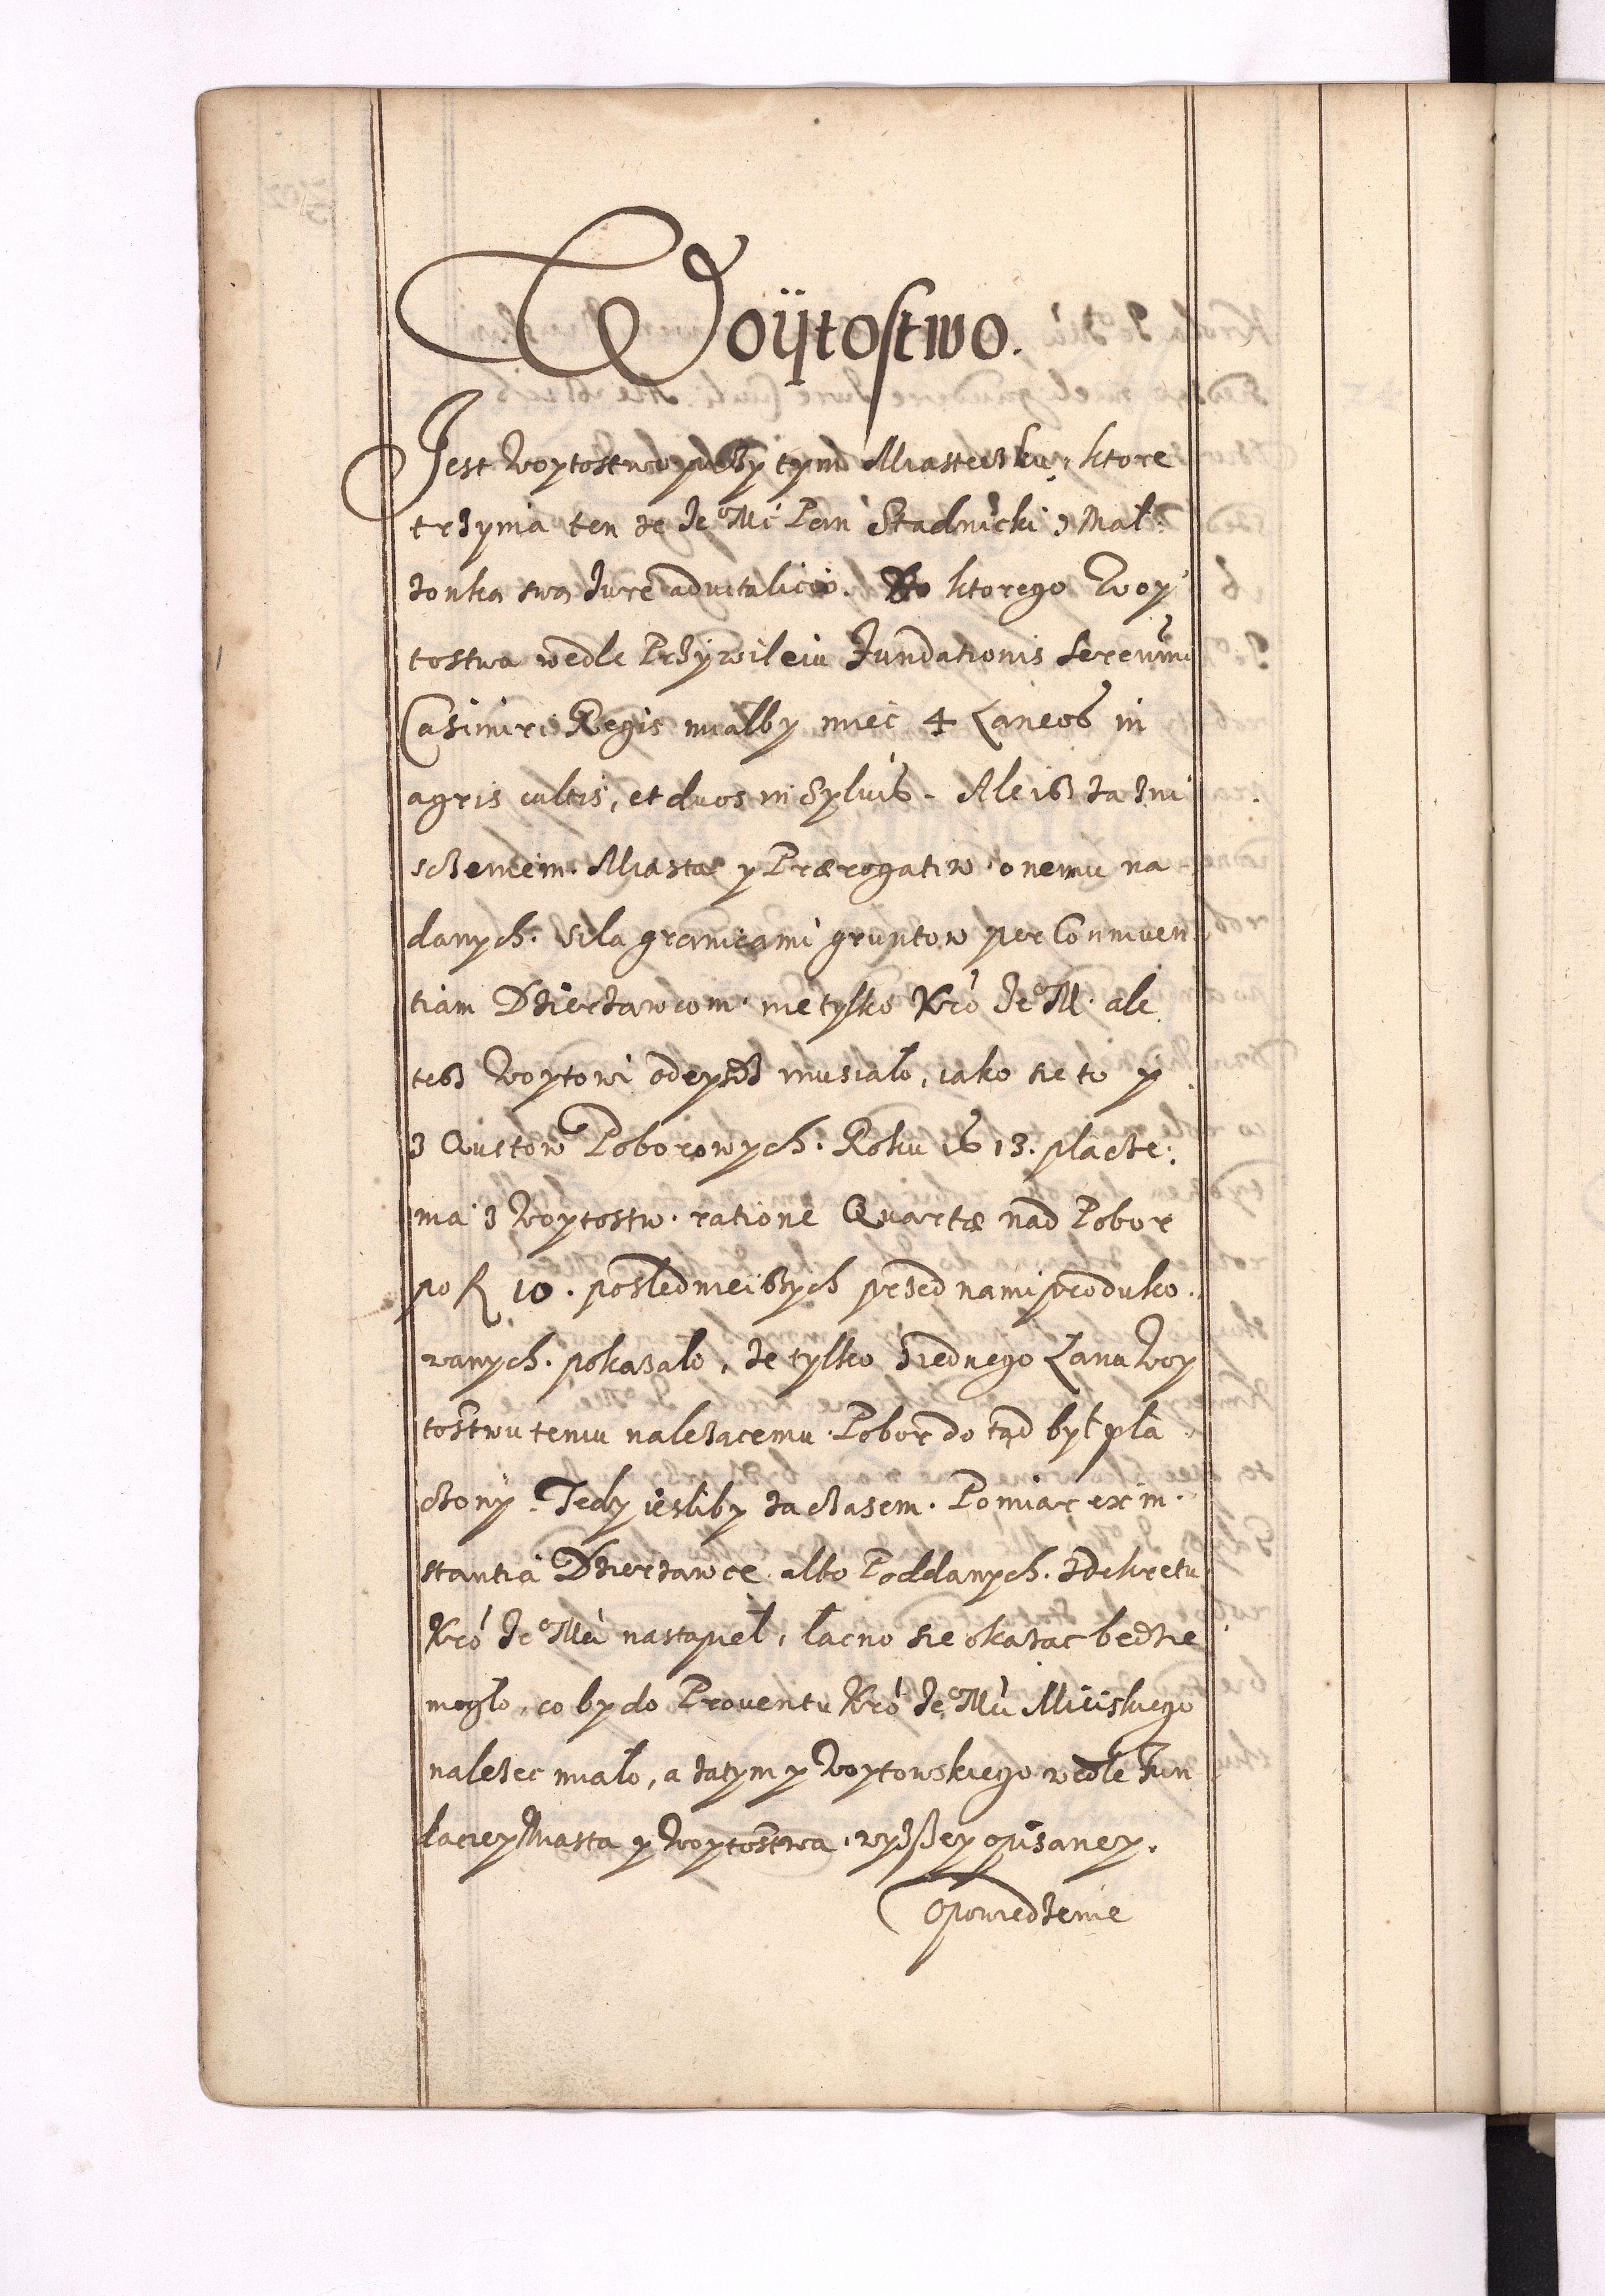 Woÿtostwo.
Jest Woytostwo przy tym Miasteczku, ktore
trzyma ten że Je° Mć Pan Stadnicki z Mał:
żonką swą Jure aduitalicio. Do ktorego Woy
tostwa wedle Przywileiu Fundationis Serenimi
Casimiri Regis miałby mieć 4 Laneos in
agris cultis, et duos in Syluis. Ale isz za zni
sczeniem Miasta y Prærogatiw onemu na
danych. siła granicami gruntow per Conniuen
tiam Dzierżawcom nie tylko Kró Je° M. ale
tesz Woytowi odeysdz musiało, iako sie to y
z Quitow Poborowych. Roku 1613. płacze:
ma z Woytostw. ratione Quartæ nad Pobor
po fl 10. posledniejszych przed nami produko.
wanych. pokazało, że tylko z iednego Łanu Woy
tostwu temu należacemu Pobor do tąd był pła
czony. Tedy iesliby za czasem. Pomiar ex in.
stantia Dzierżawce albo Poddanych. z dekretu
Kró Je° Mći nastąpieł, łacno sie okazać bedzie
mogło, co by do Prouentu Kró Je° Mći Mieiskiego
należec miało, a zatym y Woytowskiego wedle Fun
daciey Miasta y Woytostwa. wyższey opisaney.
Opowiedzenie